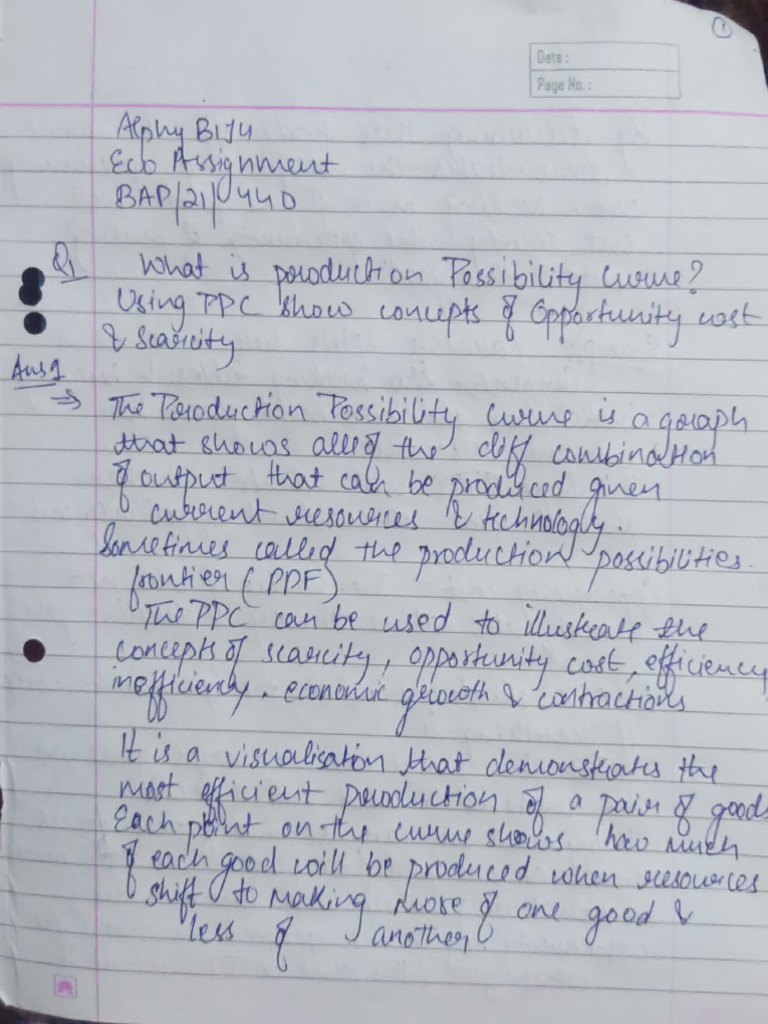 1
Date:
Page No.:
Alphy BIJU
Eco Assignment
BAP/21/440
Q1 What is production Possibility Curve?
Using PPC show concepts of Opportunity cost
& Scarcity
Ans 1
→ The Production Possibility Curve is a graph
that shows all of the diff combination
of output that can be produced given
current resources & technology.
Sometimes called the production possibilities
frontier (PPF)
The PPC can be used to illustrate the
concepts of scarcity, opportunity cost, efficiency,
inefficiency, economic growth & contractions
It is a visualisation that demonstrates the
most efficient production of a pair of goods.
Each point on the curve shows how much
of each good will be produced when resources
shift to making more of one good &
less of another